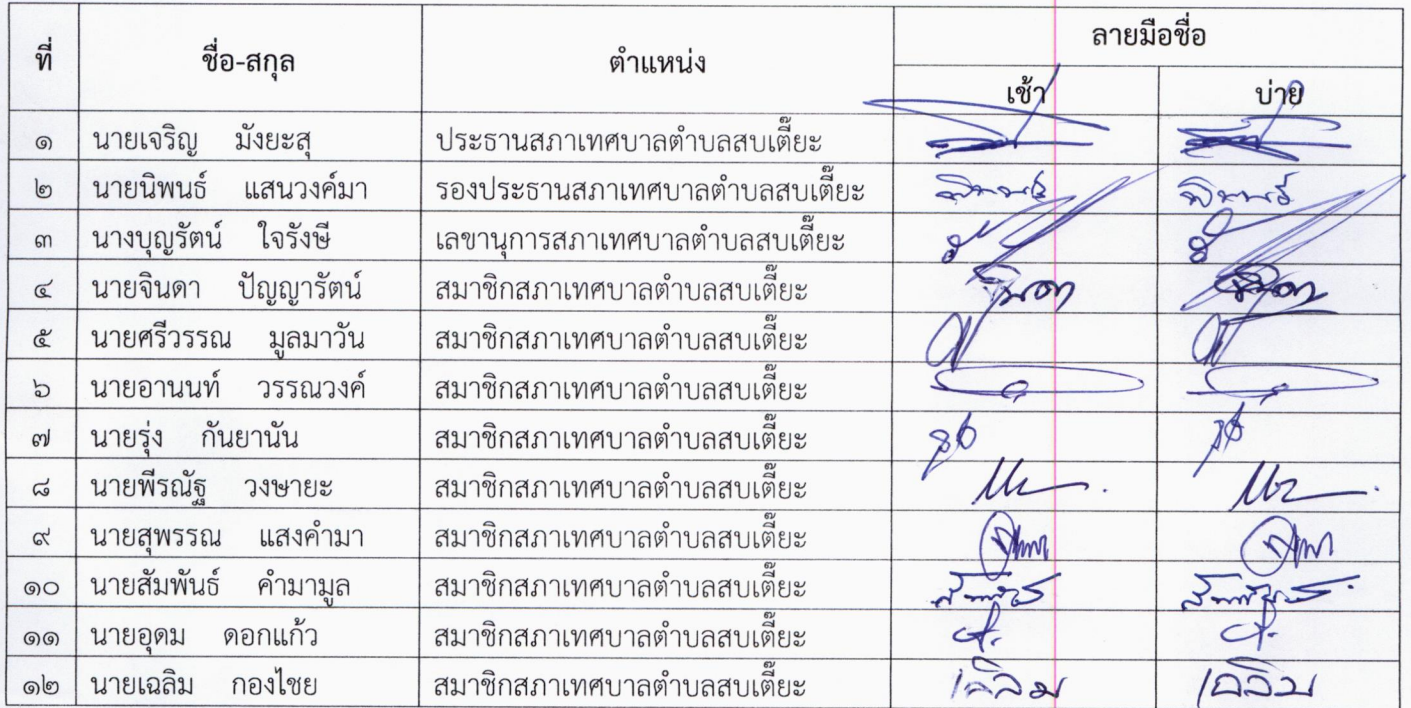 ที่ ชื่อ-สกุล ตำแหน่ง ลายมือชื่อ
เช้า บ่าย
๑ นายเจริญ มังยะสุ ประธานสภาเทศบาลตำบลสบเตี๊ยะ
๒ นายนิพนธ์ แสนวงค์มา รองประธานสภาเทศบาลตำบลสบเตี๊ยะ นิพนธ์ นิพนธ์
๓ นางบุญรัตน์ ใจรังษี เลขานุการสภาเทศบาลตำบลสบเตี๊ยะ
๔ นายจินดา ปัญญารัตน์ สมาชิกสภาเทศบาลตำบลสบเตี๊ยะ จินดา จินดา
๕ นายศรีวรรณ มูลมาวัน สมาชิกสภาเทศบาลตำบลสบเตี๊ยะ
๖ นายอานนท์ วรรณวงค์ สมาชิกสภาเทศบาลตำบลสบเตี๊ยะ
๗ นายรุ่ง กันยานัน สมาชิกสภาเทศบาลตำบลสบเตี๊ยะ
๘ นายพีรณัฐ วงษายะ สมาชิกสภาเทศบาลตำบลสบเตี๊ยะ
๙ นายสุพรรณ แสงคำมา สมาชิกสภาเทศบาลตำบลสบเตี๊ยะ
๑๐ นายสัมพันธ์ คำมามูล สมาชิกสภาเทศบาลตำบลสบเตี๊ยะ
๑๑ นายอุดม ดอกแก้ว สมาชิกสภาเทศบาลตำบลสบเตี๊ยะ
๑๒ นายเฉลิม กองไชย สมาชิกสภาเทศบาลตำบลสบเตี๊ยะ เฉลิม เฉลิม